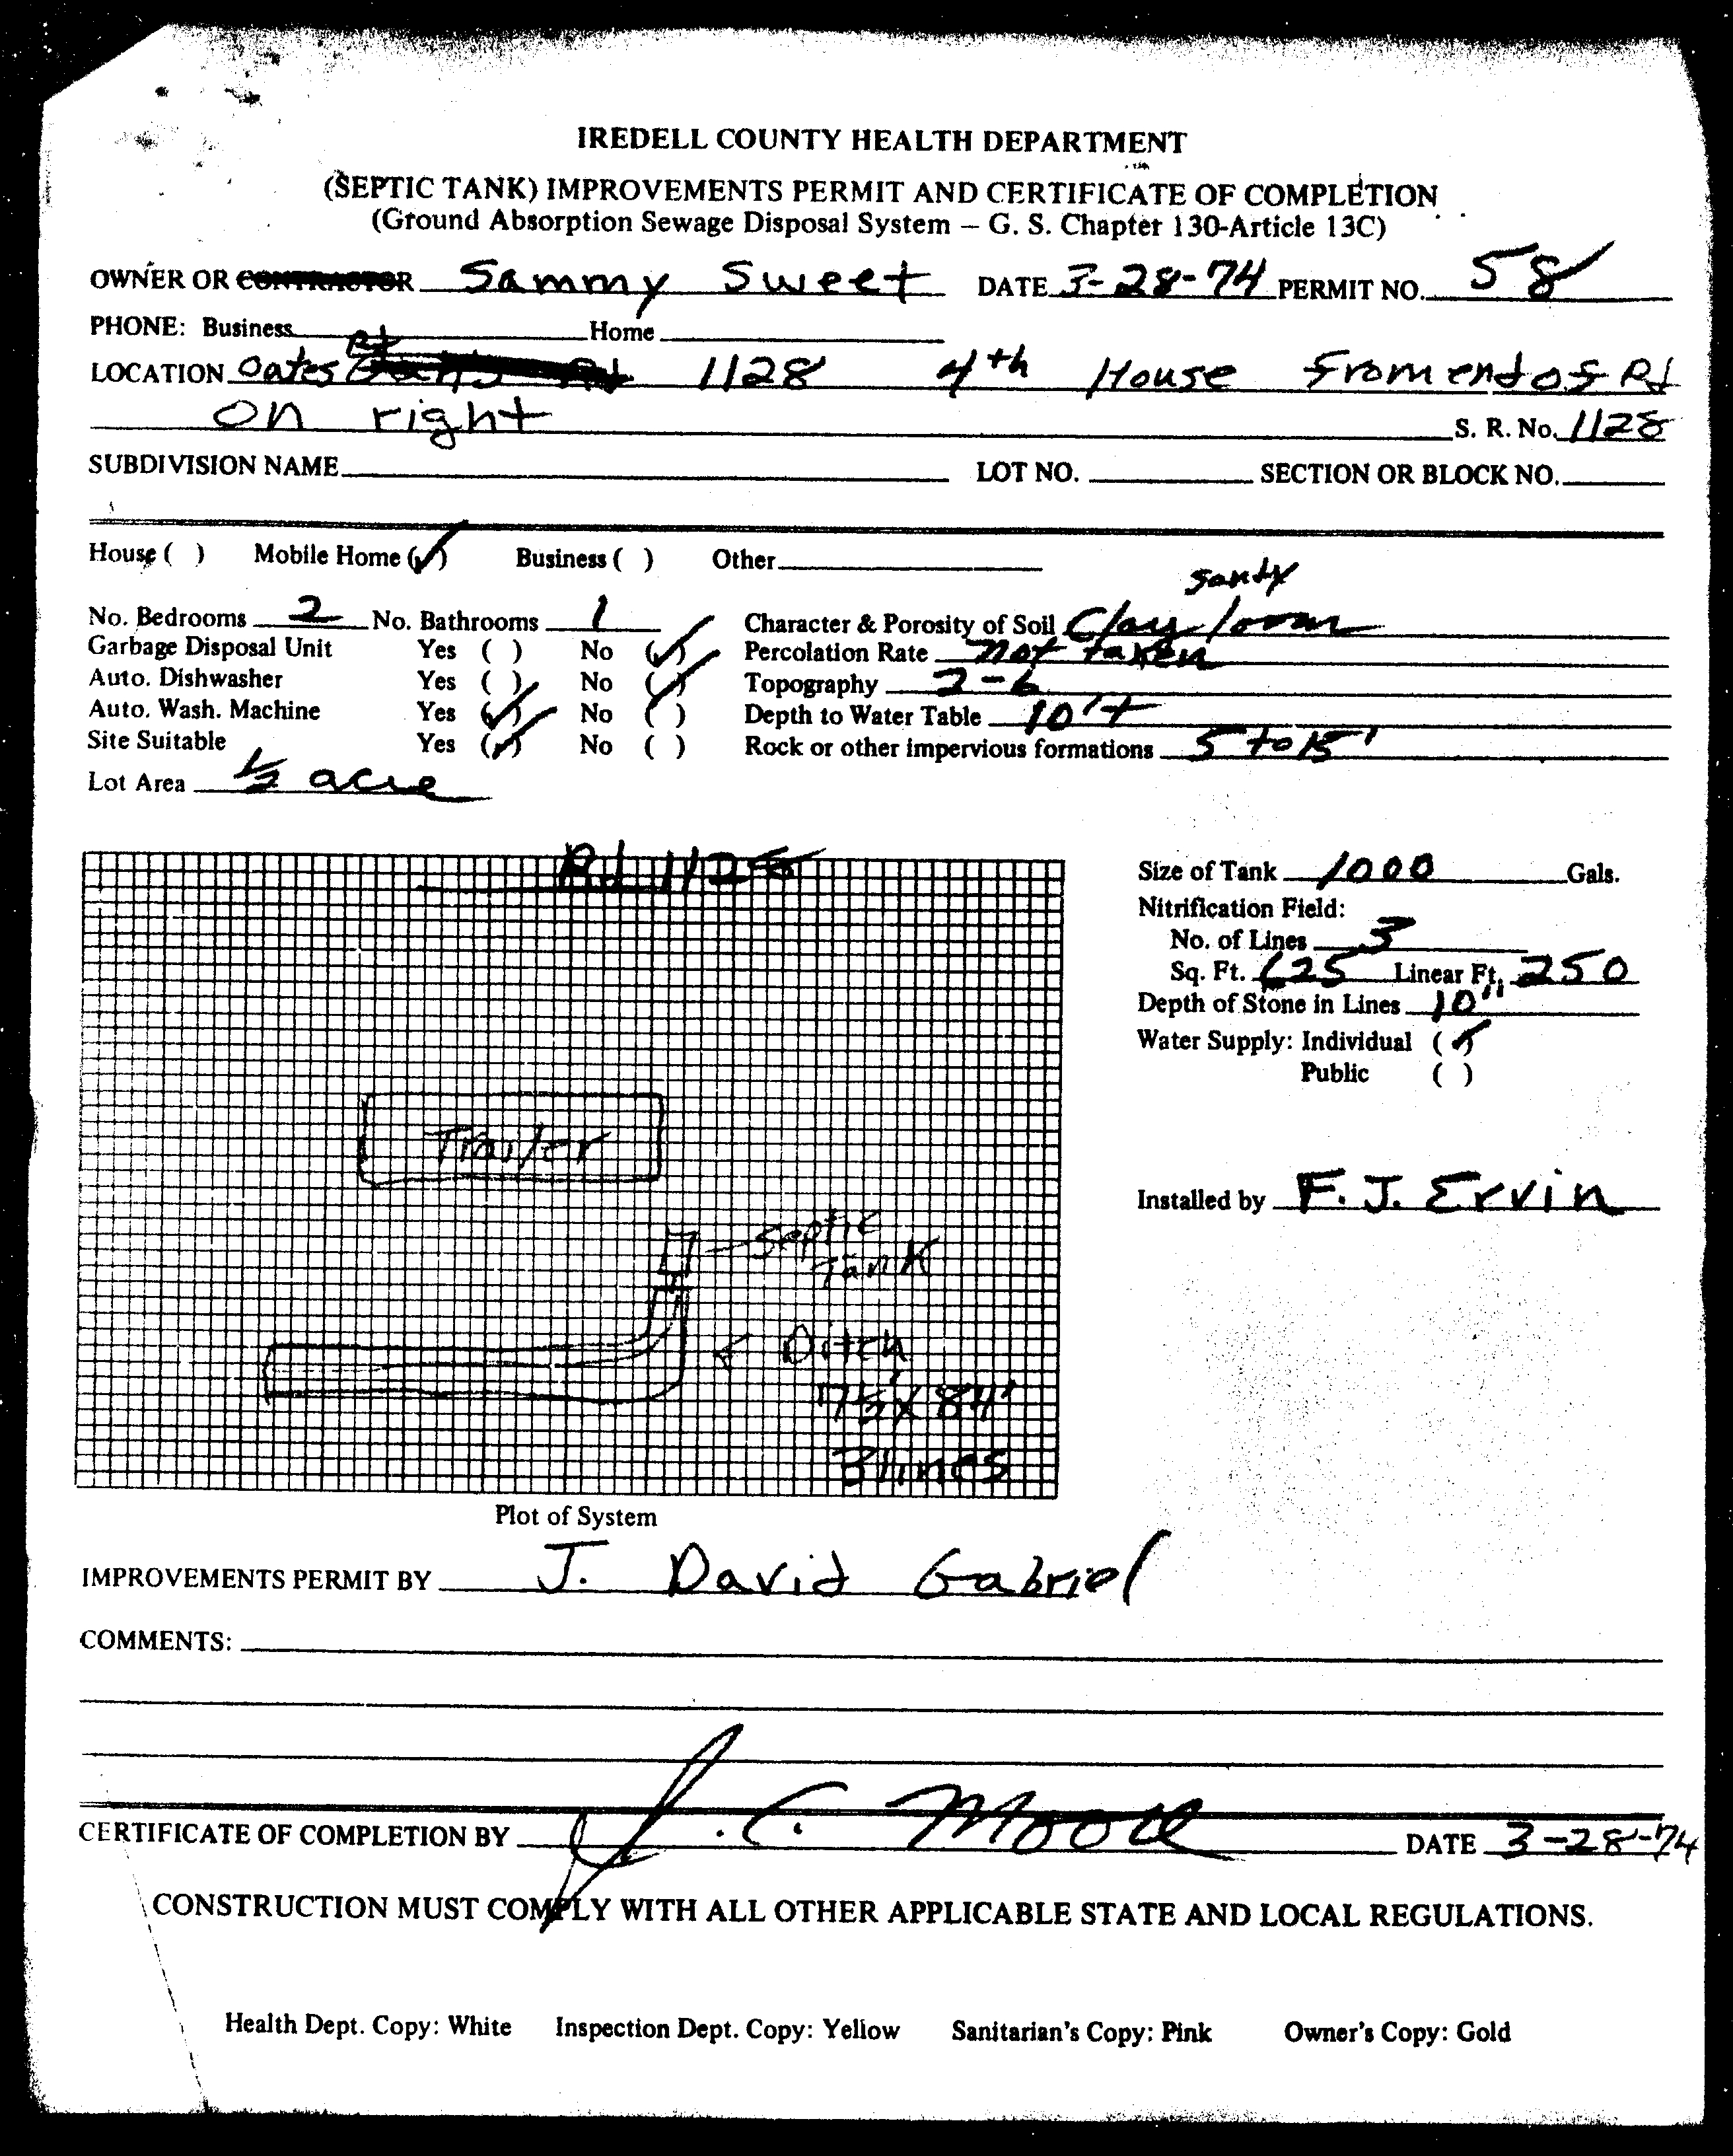 IREDELL COUNTY HEALTH DEPARTMENT
(SEPTIC TANK) IMPROVEMENTS PERMIT AND CERTIFICATE OF COMPLETION
(Ground Absorption Sewage Disposal System – G. S. Chapter 130-Article 13C)
OWNER OR CONTRACTOR Sammy Sweet DATE 3-28-74 PERMIT NO. 58
PHONE: Business Home
LOCATION Oates Rd 1128 4th House from end of Rd
on right S. R. No. 1128
SUBDIVISION NAME LOT NO. SECTION OR BLOCK NO.
House ( ) Mobile Home (✓) Business ( ) Other
sandy
No. Bedrooms 2 No. Bathrooms 1 Character & Porosity of Soil Clay loam
Garbage Disposal Unit Yes ( ) No (✓) Percolation Rate not taken
Auto. Dishwasher Yes ( ) No (✓) Topography 2-6
Auto. Wash. Machine Yes (✓) No ( ) Depth to Water Table 10'+
Site Suitable Yes (✓) No ( ) Rock or other impervious formations 5 to 15'
Lot Area 1/2 acre
Rd 1128
Size of Tank 1000 Gals.
Nitrification Field:
No. of Lines 3
Sq. Ft. 625 Linear Ft. 250
Depth of Stone in Lines 10"
Water Supply: Individual (✓)
Public ( )
Trailer
Installed by F. J. Ervin
Septic
Tank
Ditch
7½' x 84'
3 lines
Plot of System
IMPROVEMENTS PERMIT BY J. David Gabriel
COMMENTS:
CERTIFICATE OF COMPLETION BY J. C. Moore DATE 3-28-74
CONSTRUCTION MUST COMPLY WITH ALL OTHER APPLICABLE STATE AND LOCAL REGULATIONS.
Health Dept. Copy: White Inspection Dept. Copy: Yellow Sanitarian's Copy: Pink Owner's Copy: Gold